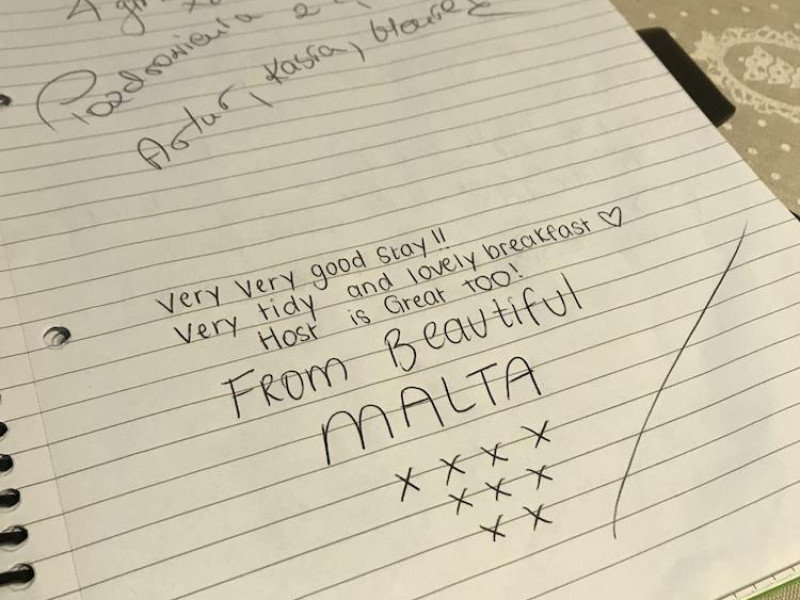 Pozdrowienia z
Artur, Kasia,
very very good stay!!
very tidy and lovely breakfast ♡
Host is Great too!
From Beautiful
MALTA
x x x x
x x x
x x